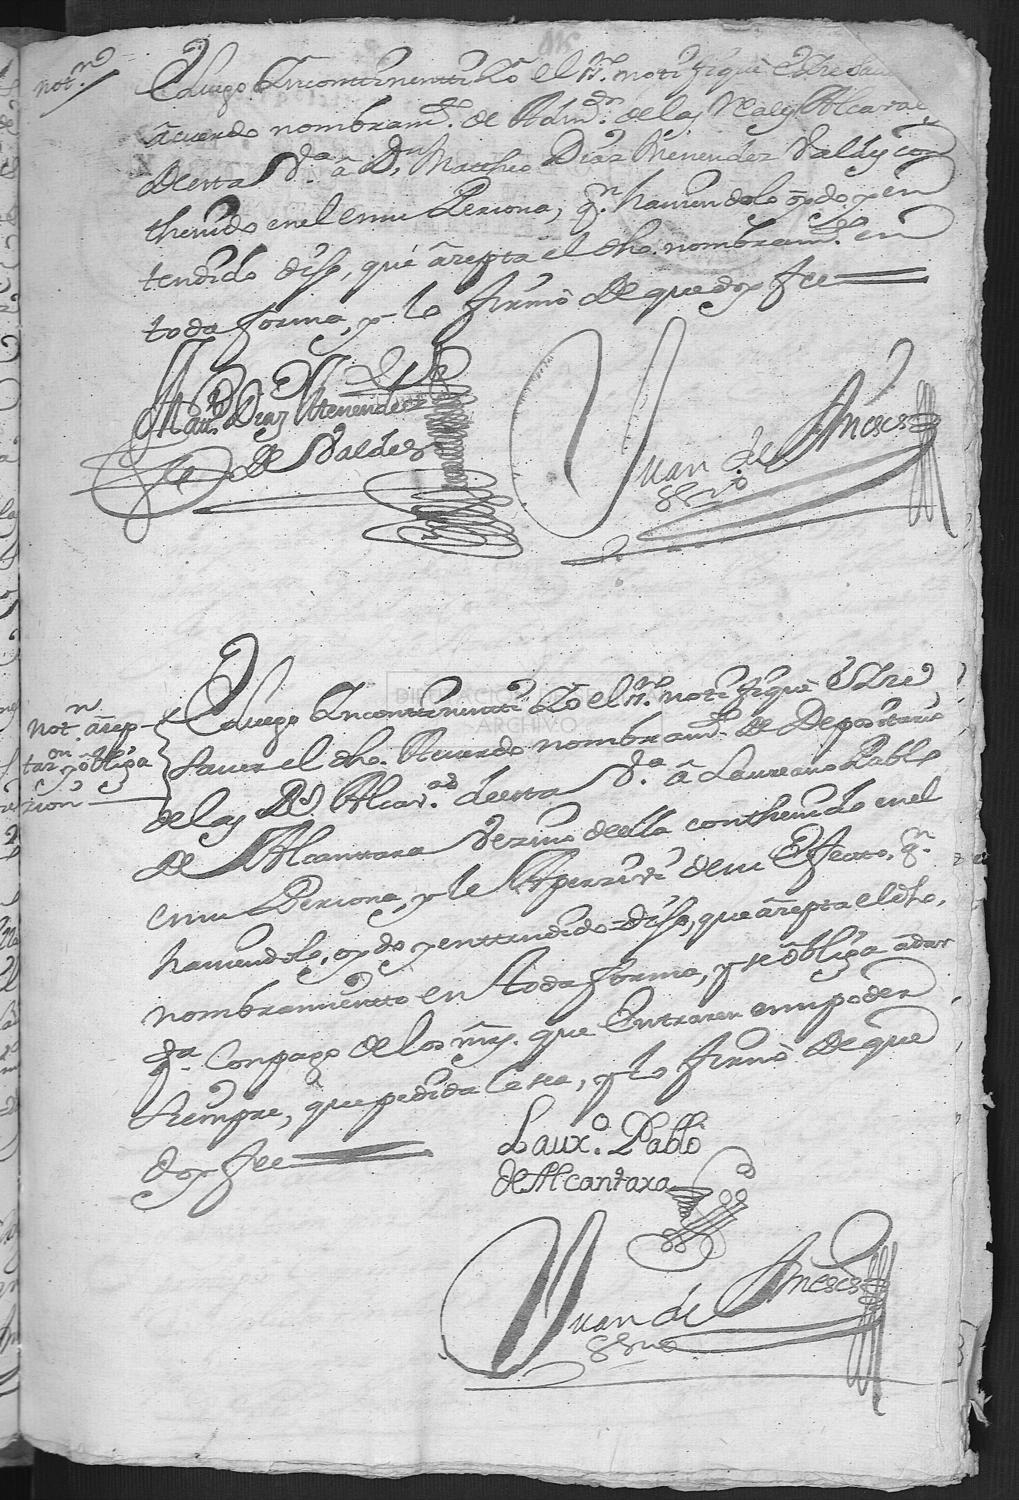 Not.n
E luego Yncontinentti Yo el es.no notifique e hize saver
acuerdo nombram.to de Adm.or de las R.s Alcavalas
de esta V.a â D.n Matheo Diaz Menendez Valdes con
thenido en el en su Persona, q.n haviendolo oydo y en
tendido dijo, que âzepta el dho. nombram.to en
toda forma, y lo firmò de que doy fee
Matt.o Diaz Menendez
de Valdes
Juan de
ess.no
Not.n âzep
taz.on y ôbliga
zion
E luego Yncontinentti Yo el es.no notifiquè e hize
saver el dho. Acuerdo nombram.to de Depositario
de las R.s Alcav.as de esta V.a â Laureano Pablo
de Alcanttara Vezino de ella conthenido en el
en su Persona, y le Aperziví de su Efecto, q.n
haviendolo, oydo y enttendido dijo, que âzepta el dho.
nombramientto en toda forma, y se ôbliga a dar
q.ta Con pago de los mrs. que Entraren en su poder
siempre, que pedida le sea, y lo firmò de que
doy fee
Laur.o Pablo
de Alcantara
Juan de
ess.no
DIPUTACION
ARCHIVO